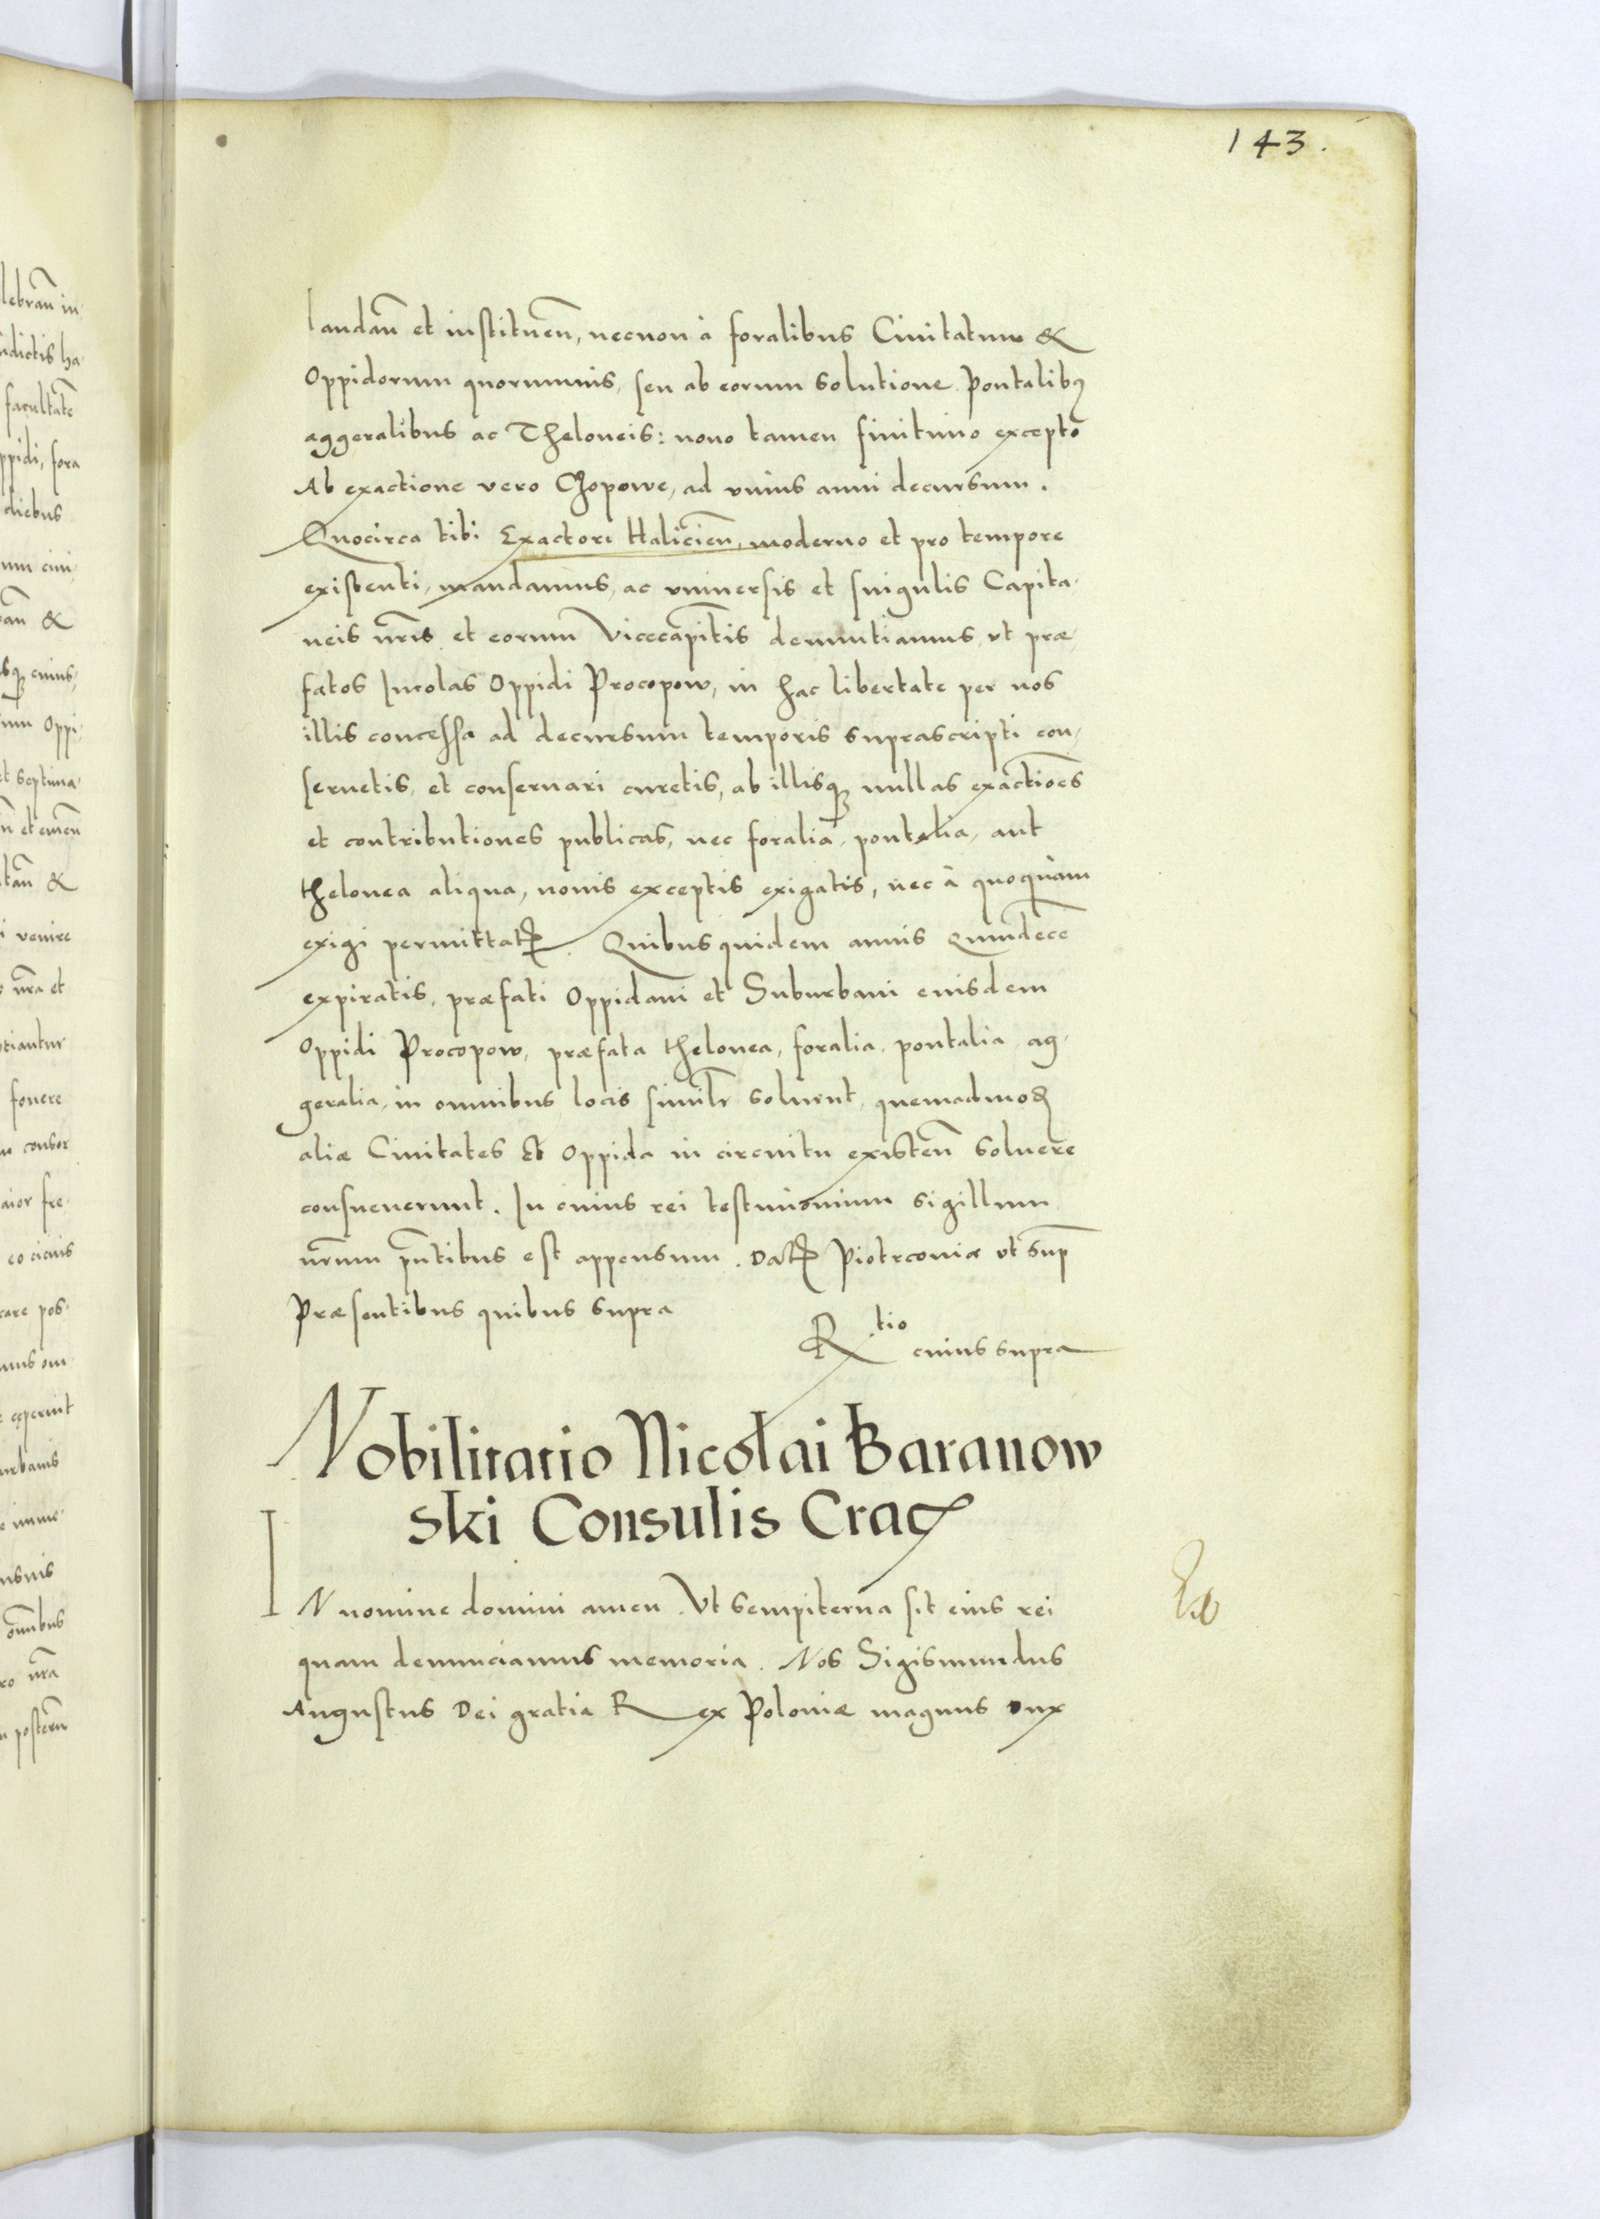 143.
laudan̄ et instituen̄, necnon à foralibus Ciuitatum &
Oppidorum quorumuis, seu ab eorum solutione Pontalibꝫ
aggeralibus ac Theloneis: nouo tamen finitimo excepto
Ab exactione vero Czopowe, ad vnius anni decursum.
Quocirca tibi Exactori Halicien̄, moderno et pro tempore
existenti, mandamus, ac vniuersis et singulis Capita-
neis nr̄is et eorum Vicecapit̄is denuntiamus, vt præ-
fatos Incolas Oppidi Procopow, in hac libertate per nos
illis concessa ad decursum temporis suprascripti con-
seruetis, et conseruari curetis, ab illisqꝫ nullas exactiōes
et contributiones publicas, nec foralia, pontalia, aut
thelonea aliqua, nouis exceptis exigatis, nec à quoquam
exigi permittatꝭ. Quibus quidem annis Quindecē
expiratis, præfati Oppidani et Suburbani eiusdem
Oppidi Procopow, præfata thelonea, foralia, pontalia, ag-
geralia, in omnibus locis simil̄r soluent, quemadmoꝺ
aliæ Ciuitates Et Oppida in circuitu existen̄ soluere
consueuerunt. In cuius rei testimonium sigillum
nr̄um pn̄tibus est appensum. Datꝭ Piotrcouiæ vt sup̄
Præsentibus quibus supra
R tio cuius supra
Nobilitatio Nicolai Baranow
ski Consulis Crac
IN nomine domini amen. Vt sempiterna sit eius rei
quam denunciamus memoria. Nos Sigismundus
Augustus Dei gratia Rex Poloniæ magnus Dux